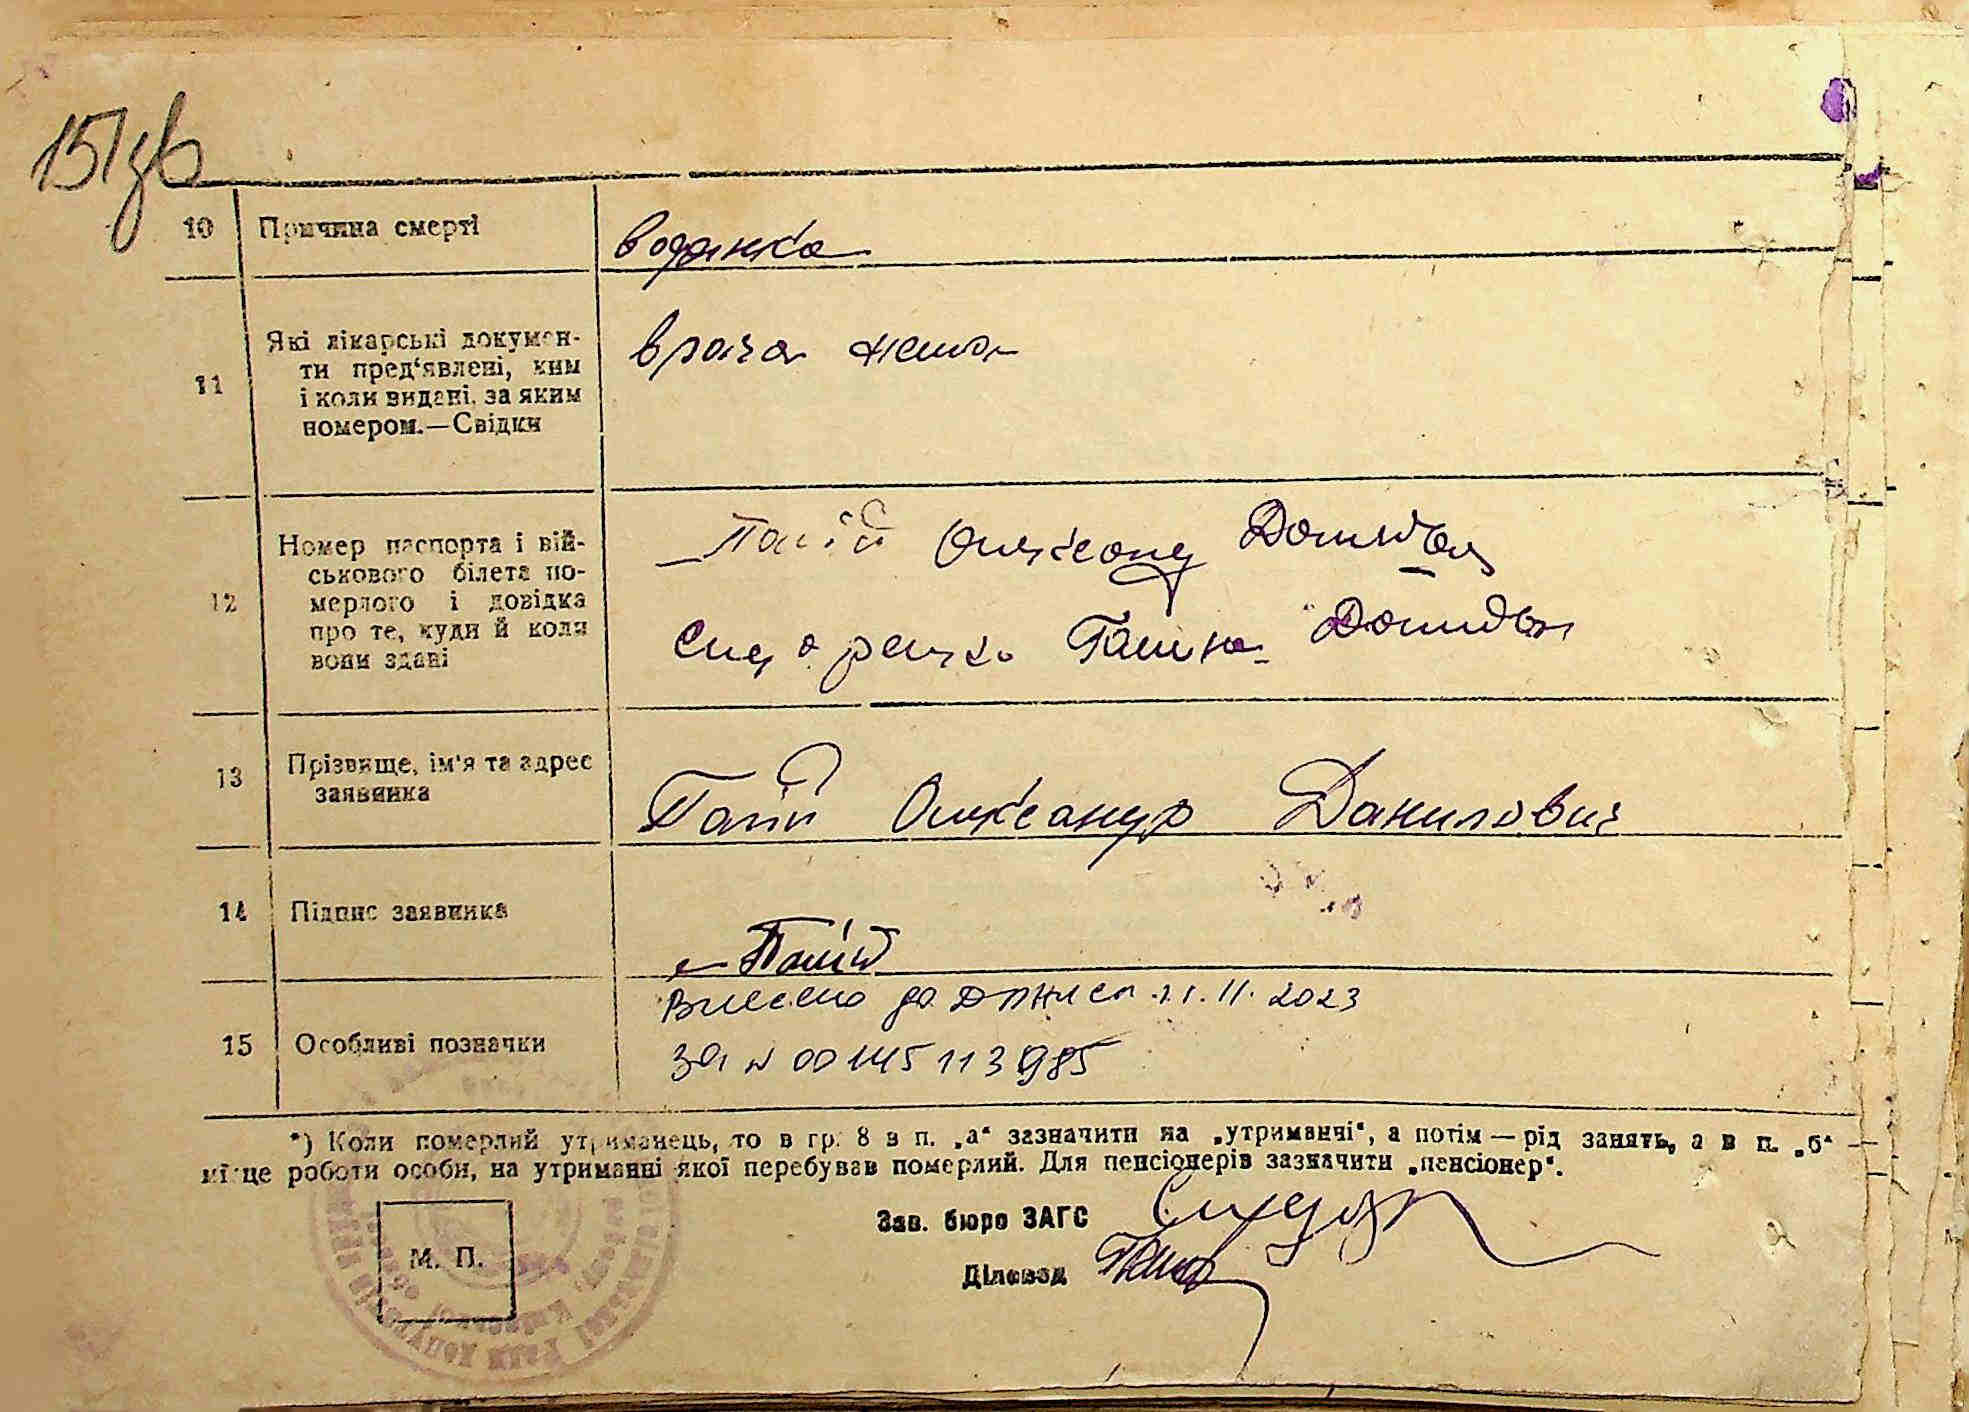 151зв
10 Причина смерті водянка
11 Які лікарські докумен-
ти пред‘явлені, ким
і коли видані, за яким
номером.—Свідки
врача нема
12 Номер паспорта і вій-
ськового білета по-
мерлого і довідка
про те, куди й коли
вони здані
Палій Олександ
Галина
13 Прізвище, ім'я та адрес
заявника
Палій Олександр Данилович
14 Підпис заявника
Палій
15 Особливі позначки
Внесено до 11. 2023
за № 00145113985
*) Коли померлий утриманець, то в гр. 8 в п. „а“ зазначити на „утриманчі“, а потім — рід занять, а в п. „б“ —
місце роботи особи, на утриманні якої перебував померлий. Для пенсіонерів зазначити „пенсіонер“.
Зав. бюро ЗАГС
Діловод
М. П.